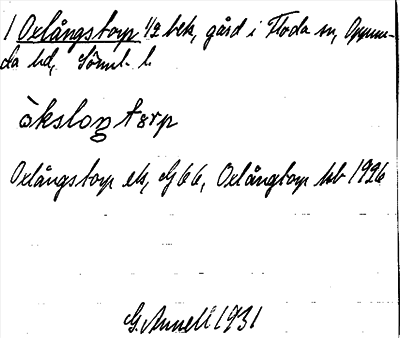 1 Oxlångstorp 1/2 bek, gård i Floda sn, Oppun-
da hd, Söml. l.
òksloŋtorp
Oxlångstorp ek, G 66, Oxlångtorp kb 1926
G. Annell 1931